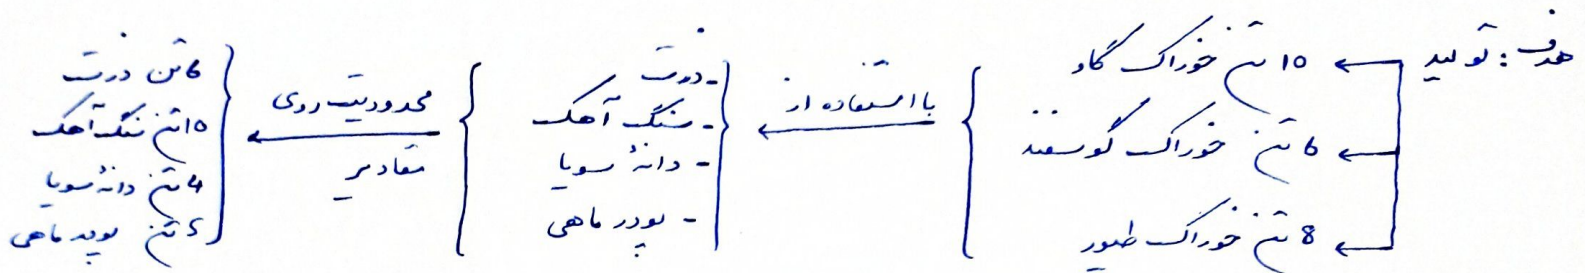 هدف: تولید
10 تن خوراک گاو
6 تن خوراک گوسفند
8 تن خوراک طیور
با استفاده از
- ذرت
- سنگ آهک
- دانهٔ سویا
- پودر ماهی
محدودیت روی
مقادیر
6 تن ذرت
10 تن سنگ آهک
4 تن دانهٔ سویا
5 تن پودر ماهی